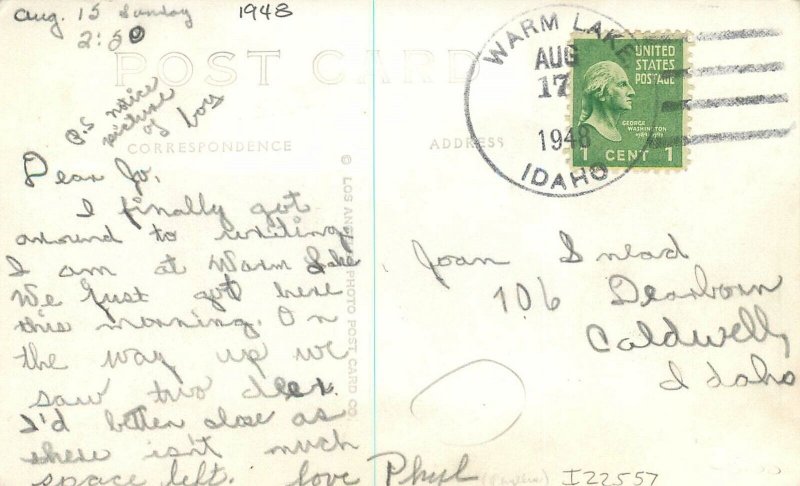 Aug. 15 Sunday
2:50
1948
POST CARD
P.S notice
picture
of boy
CORRESPONDENCE
ADDRESS
Dear Jo,
I finally got
around to writing.
I am at Warm Lake
We just got here
this morning. On
the way up we
saw two deer.
I'd better close as
there isn't much
space left. love Phyl
© LOS ANGELES PHOTO POST CARD CO.
WARM LAKE
AUG
17
1948
IDAHO
UNITED
STATES
POSTAGE
GEORGE
WASHINGTON
1 CENT 1
Joan Snead
106 Dearborn
Caldwell,
Idaho
I22557